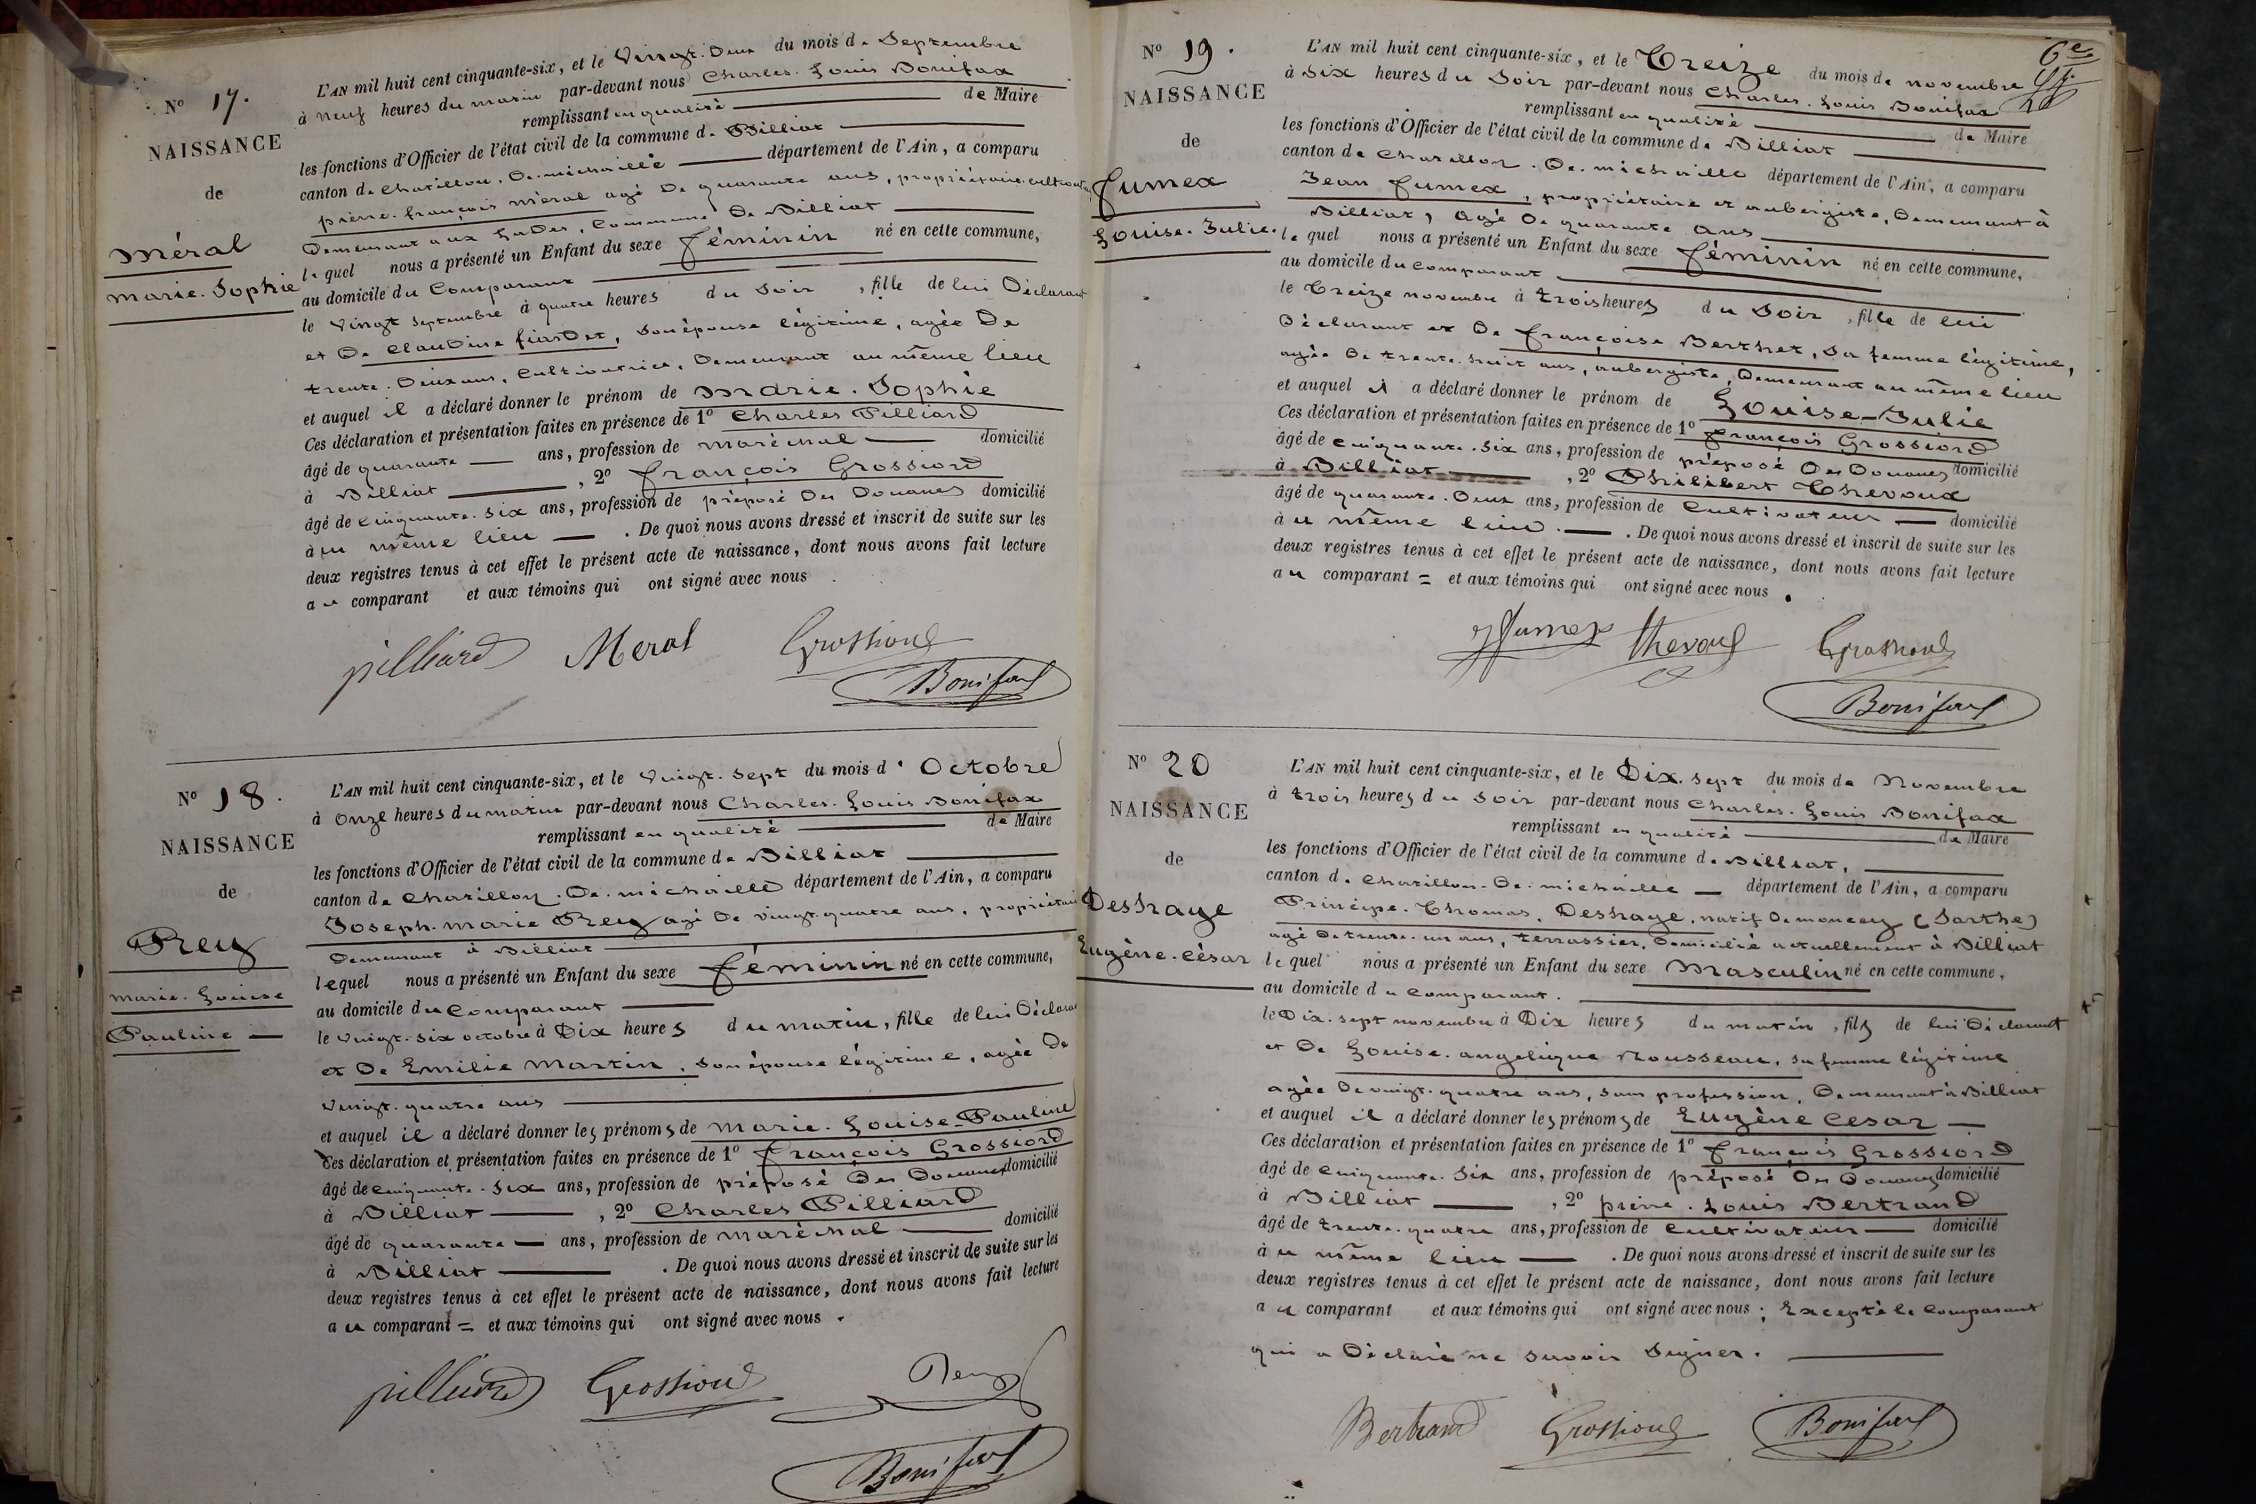 Nº 17.
NAISSANCE
de
Méral
Marie-Sophie
L'AN mil huit cent cinquante-six, et le Vingt-Deux du mois de Septembre
à neuf heures du matin par-devant nous Charles-Louis Bonifax
remplissant en qualité de Maire
les fonctions d'Officier de l'état civil de la commune de Billiat
canton de Chatillon-De-michaille département de l'Ain, a comparu
pierre-françois méral agé De quarante ans, propriétaire cultivateur
Demeurant aux Lades, Commune De Billiat
lequel nous a présenté un Enfant du sexe féminin né en cette commune,
au domicile du Comparant
le Vingt septembre à quatre heures du soir, fille de lui Déclarant
et De Claudine fiardet, son épouse légitime, agée De
trente-Deux ans, Cultivatrice, Demeurant au même lieu
et auquel il a déclaré donner le prénom de Marie-Sophie
Ces déclaration et présentation faites en présence de 1º Charles Pilliard
âgé de quarante ans, profession de maréchal domicilié
à Billiat, 2º françois Grossiord
âgé de cinquante-six ans, profession de préposé Des Douanes domicilié
à u même lieu. De quoi nous avons dressé et inscrit de suite sur les
deux registres tenus à cet effet le présent acte de naissance, dont nous avons fait lecture
au comparant et aux témoins qui ont signé avec nous
pilliard Meral Grossiord
Bonifax
Nº 18.
NAISSANCE
de
Rey
marie-Louise
Pauline
L'AN mil huit cent cinquante-six, et le vingt-sept du mois d'Octobre
à onze heures du matin par-devant nous Charles-Louis Bonifax
remplissant en qualité de Maire
les fonctions d'Officier de l'état civil de la commune de Billiat
canton de Chatillon-De-michaille département de l'Ain, a comparu
Joseph-marie Rey agé De vingt-quatre ans, propriétaire
Demeurant à Billiat
lequel nous a présenté un Enfant du sexe féminin né en cette commune,
au domicile du Comparant
le vingt-six octobre à Dix heures du matin, fille de lui Déclarant
et De Emilie Martin, son épouse légitime, agée De
vingt-quatre ans
et auquel il a déclaré donner les prénoms de Marie-Louise-Pauline
Ces déclaration et présentation faites en présence de 1º françois Grossiord
âgé de cinquante-six ans, profession de préposé Des Douanes domicilié
à Billiat, 2º Charles Pilliard
âgé de quarante ans, profession de maréchal domicilié
à Billiat. De quoi nous avons dressé et inscrit de suite sur les
deux registres tenus à cet effet le présent acte de naissance, dont nous avons fait lecture
au comparant = et aux témoins qui ont signé avec nous.
pilliard Grossiord Rey
Bonifax
6e
Nº 19.
NAISSANCE
de
fumex
Louise-Julie.
L'AN mil huit cent cinquante-six, et le Treize du mois de novembre
à six heures du soir par-devant nous Charles-Louis Bonifax
remplissant en qualité de Maire
les fonctions d'Officier de l'état civil de la commune de Billiat
canton de Chatillon-De-michaille département de l'Ain, a comparu
Jean fumex, propriétaire et aubergiste, Demeurant à
Billiat, agé De quarante ans
lequel nous a présenté un Enfant du sexe féminin né en cette commune,
au domicile du comparant
le Treize novembre à trois heures du soir, fille de lui
Déclarant et De françoise Berthet, sa femme légitime,
agée De trente-huit ans, aubergiste, Demeurant au même lieu
et auquel il a déclaré donner le prénom de Louise-Julie
Ces déclaration et présentation faites en présence de 1º françois Grossiord
âgé de cinquante-six ans, profession de préposé Des Douanes domicilié
à Billiat, 2º Philibert Thevoux
âgé de quarante-Deux ans, profession de Cultivateur domicilié
à u même lieu. De quoi nous avons dressé et inscrit de suite sur les
deux registres tenus à cet effet le présent acte de naissance, dont nous avons fait lecture
au comparant = et aux témoins qui ont signé avec nous.
Jfumex thevoux Grossiord
Bonifax
Nº 20
NAISSANCE
de
Deshaye
Eugène-César
L'AN mil huit cent cinquante-six, et le Dix-sept du mois de Novembre
à trois heures du soir par-devant nous Charles-Louis Bonifax
remplissant en qualité de Maire
les fonctions d'Officier de l'état civil de la commune de Billiat,
canton de Chatillon-De-michaille département de l'Ain, a comparu
Principe-Thomas Deshaye, natif De (Sarthe)
agé De trente-un ans, terrassier, Domicilié actuellement à Billiat
lequel nous a présenté un Enfant du sexe Masculin né en cette commune,
au domicile du comparant.
le Dix-sept novembre à Dix heures du matin, fils de lui Déclarant
et De Louise-angelique Rousseau, sa femme légitime
agée De vingt-quatre ans, sans profession, Demeurant à Billiat
et auquel il a déclaré donner les prénoms de Eugène Cesar
Ces déclaration et présentation faites en présence de 1º françois Grossiord
âgé de cinquante-six ans, profession de préposé Des Douanes domicilié
à Billiat, 2º pierre-Louis Bertrand
âgé de trente-quatre ans, profession de Cultivateur domicilié
à u même lieu. De quoi nous avons dressé et inscrit de suite sur les
deux registres tenus à cet effet le présent acte de naissance, dont nous avons fait lecture
au comparant et aux témoins qui ont signé avec nous; Excepté le Comparant
qui a Déclaré ne savoir signer.
Bertrand Grossiord Bonifax